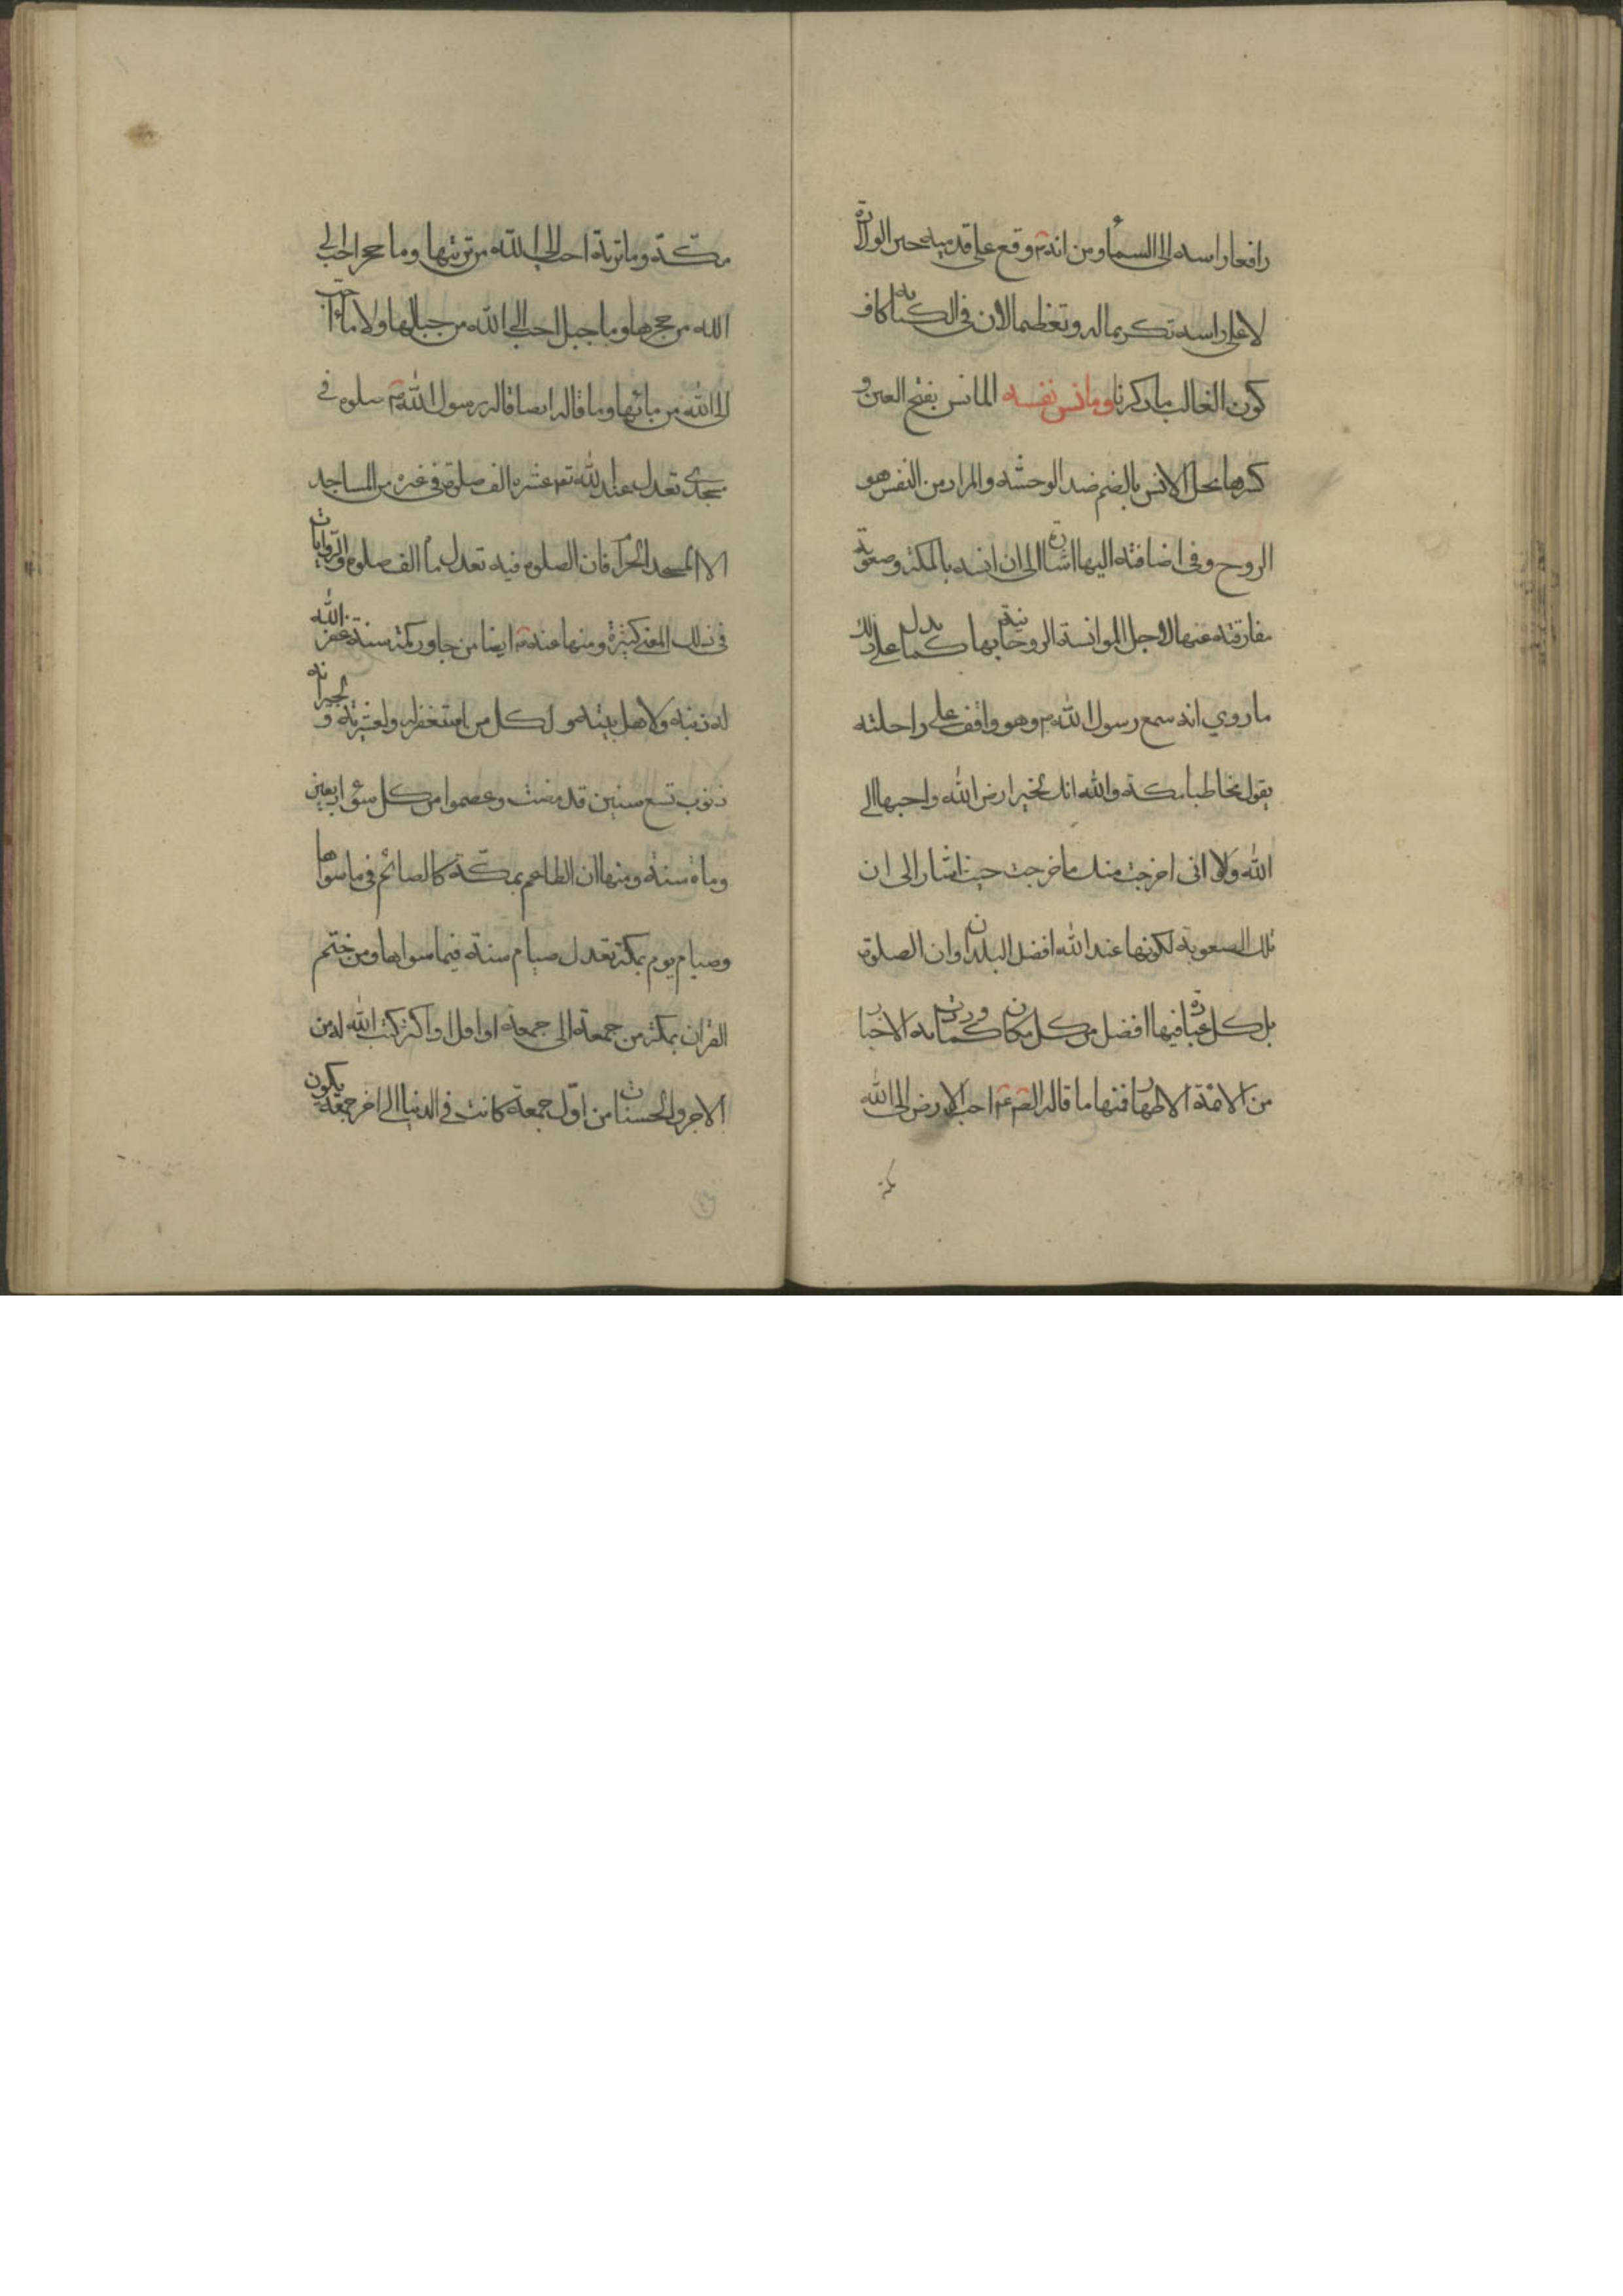 رافعا راسه الى السماء ومن انه ۴ وقع على قدميه حين الولادة
لا على راسه تكريما له وتعظيما لان فى الكناية كاف
كون الغالب ما ذكرنا ومانس نفسه المانس بفتح العين و
كسرها محل الانس بالضم ضد الوحشة والمراد من النفس هو
الروح وفى اضافته اليها اشارة الى ان انسه بالمكة وصعوبة
مفارقته عنها لاجل الموانسة الروحانية بها كما يدل على ذلك
ما روي انه سمع رسول الله ۴ وهو واقف على راحلته
يقول مخاطبا بمكة والله انك لخير ارض الله واحبها الى
الله ولولا انى اخرجت منك ما خرجت حيث اشار الى ان
تلك الصعوبة لكونها عند الله افضل البلدان وان الصلوة
بل كل عبادة فيها افضل من كل مكان كما وردت به الاخبار
من الائمة الاطهار فمنها ما قاله الصۥ عۥ احب الارض الى الله
مكة
مكة وما تربة احب الى الله من تربتها وما حجر احب الى
الله من حجرها وما جبل احب الى الله من جبالها ولا ماء احب
الى الله من مائها وما قاله ايضا قال رسول الله ۴ صلوة فى
مسجدى تعدل عند الله تع عشرة الف صلوة فى غيره من المساجد
الا المسجد الحرام فان الصلوة فيه تعدل مأة الف صلوة والروايات
فى ذلك المعنى كثيرة ومنها عنه ۴ ايضا من جاور مكة سنة غفر الله
له ذنبه ولاهل بيته ولكل من استغفر له ولعشيرته ولجيرانه
ذنوب تسع سنين قد مضت وعصموا من كل سوء اربعين
ومأة سنة ومنها ان الطاعم بمكة كالصائم فى ما سواها
وصيام يوم بمكة تعدل صيام سنة فيما سواها ومن ختم
القران بمكة من جمعة الى جمعة او اقل او اكثر كتب الله له من
الاجر والحسنات من اول جمعة كانت فى الدنيا الى اخر جمعة يكون